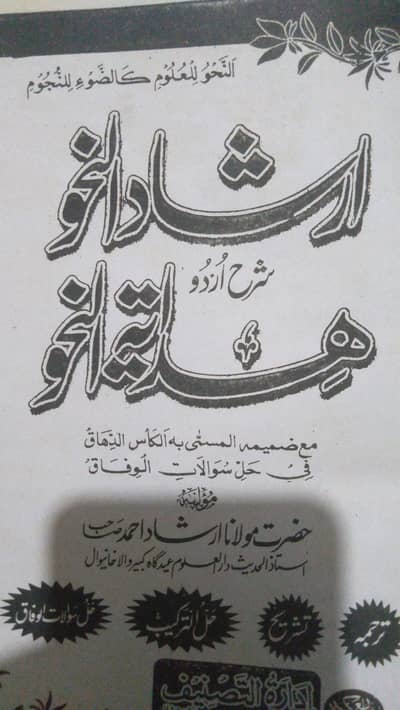 اَلنَّحْوُ لِلْعُلُوْمِ كَالضَّوْءِ لِلنُّجُوْمِ
ارشاد النحو
شرح اُردُو
هدایة النحو
مع ضمیمہ المسمّٰی بہ اَلْکَاْسُ الدِّهَاقْ
فِیْ حَلِّ سُوَالَاتِ الْوِفَاقْ
مؤلفہ
حضرت مولانا ارشاد احمد صاحب
استاذ الحدیث دار العلوم عیدگاہ کبیر والا خانیوال
ترجمہ
تشریح
حل الترکیب
حل سوالات الوفاق
اِدَارَةُ التَّصْنِیْف